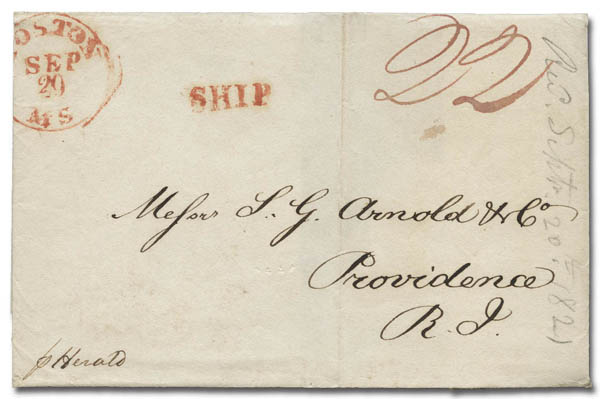 BOSTON
SEP
20
MS
SHIP
22
Messrs S. G. Arnold & Co
Providence
R. I.
p Herald
Rec. Septr. 20th 1821